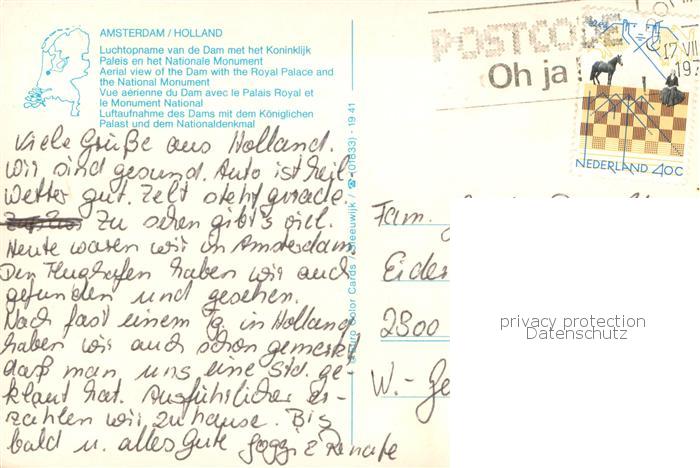 AMSTERDAM / HOLLAND
Luchtopname van de Dam met het Koninklijk
Paleis en het Nationale Monument
Aerial view of the Dam with the Royal Palace and
the National Monument
Vue aérienne du Dam avec le Palais Royal et
le Monument National
Luftaufnahme des Dams mit dem Königlichen
Palast und dem Nationaldenkmal
Viele Grüße aus Holland.
Wir sind gesund. Auto ist heil.
Wetter gut. Zelt steht gerade.
Zu sehen gibt's viel.
Heute waren wir in Amsterdam
Den Flughafen haben wir auch
gefunden und gesehen.
Nach fast einem Tg. in Holland
haben wir auch schon gemerkt
daß man uns eine Std. ge-
klaut hat. Ausführlicher er-
zählen wir zuhause. Bis
bald u. alles Gute Joggi & Renate
Color Cards
(01833) - 19 41
POSTCODE
Oh ja!
17 VII
197
NEDERLAND 40C
Fam.
Eider
2800
W.- Ge
privacy protection
Datenschutz